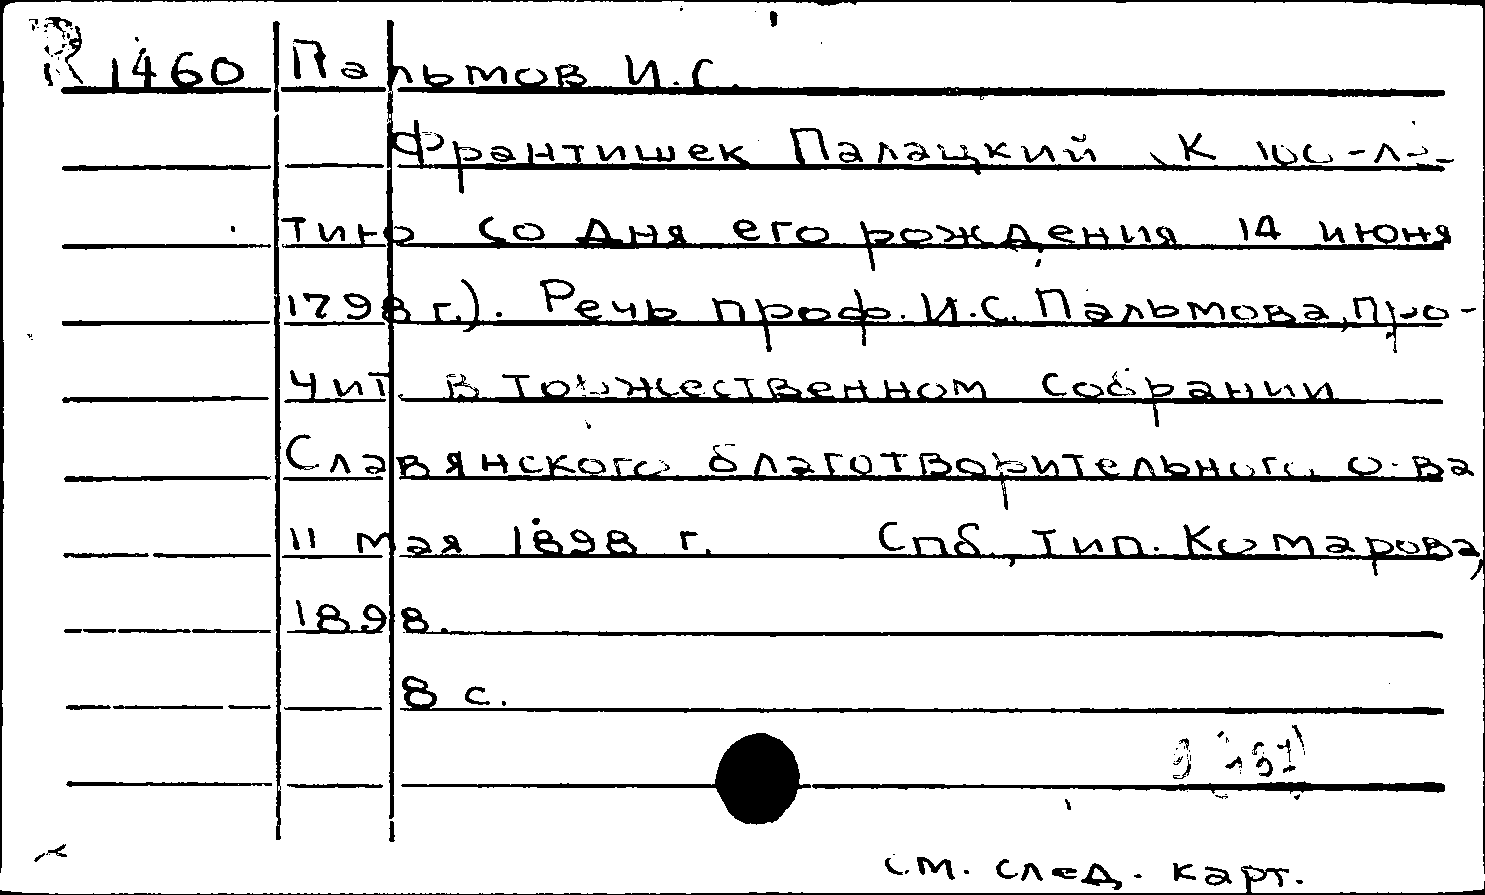 R 1460 Пальмов И.С.
Франтишек Палацкий (К 100-ле-
тию со дня его рождения 14 июня
1798 г.). Речь проф. И.С. Пальмова, про-
чит. в торжественном собрании
Славянского благотворительного о-ва
11 мая 1898 г. Спб, тип. Комарова,
1898.
8 с.
см. след. карт.